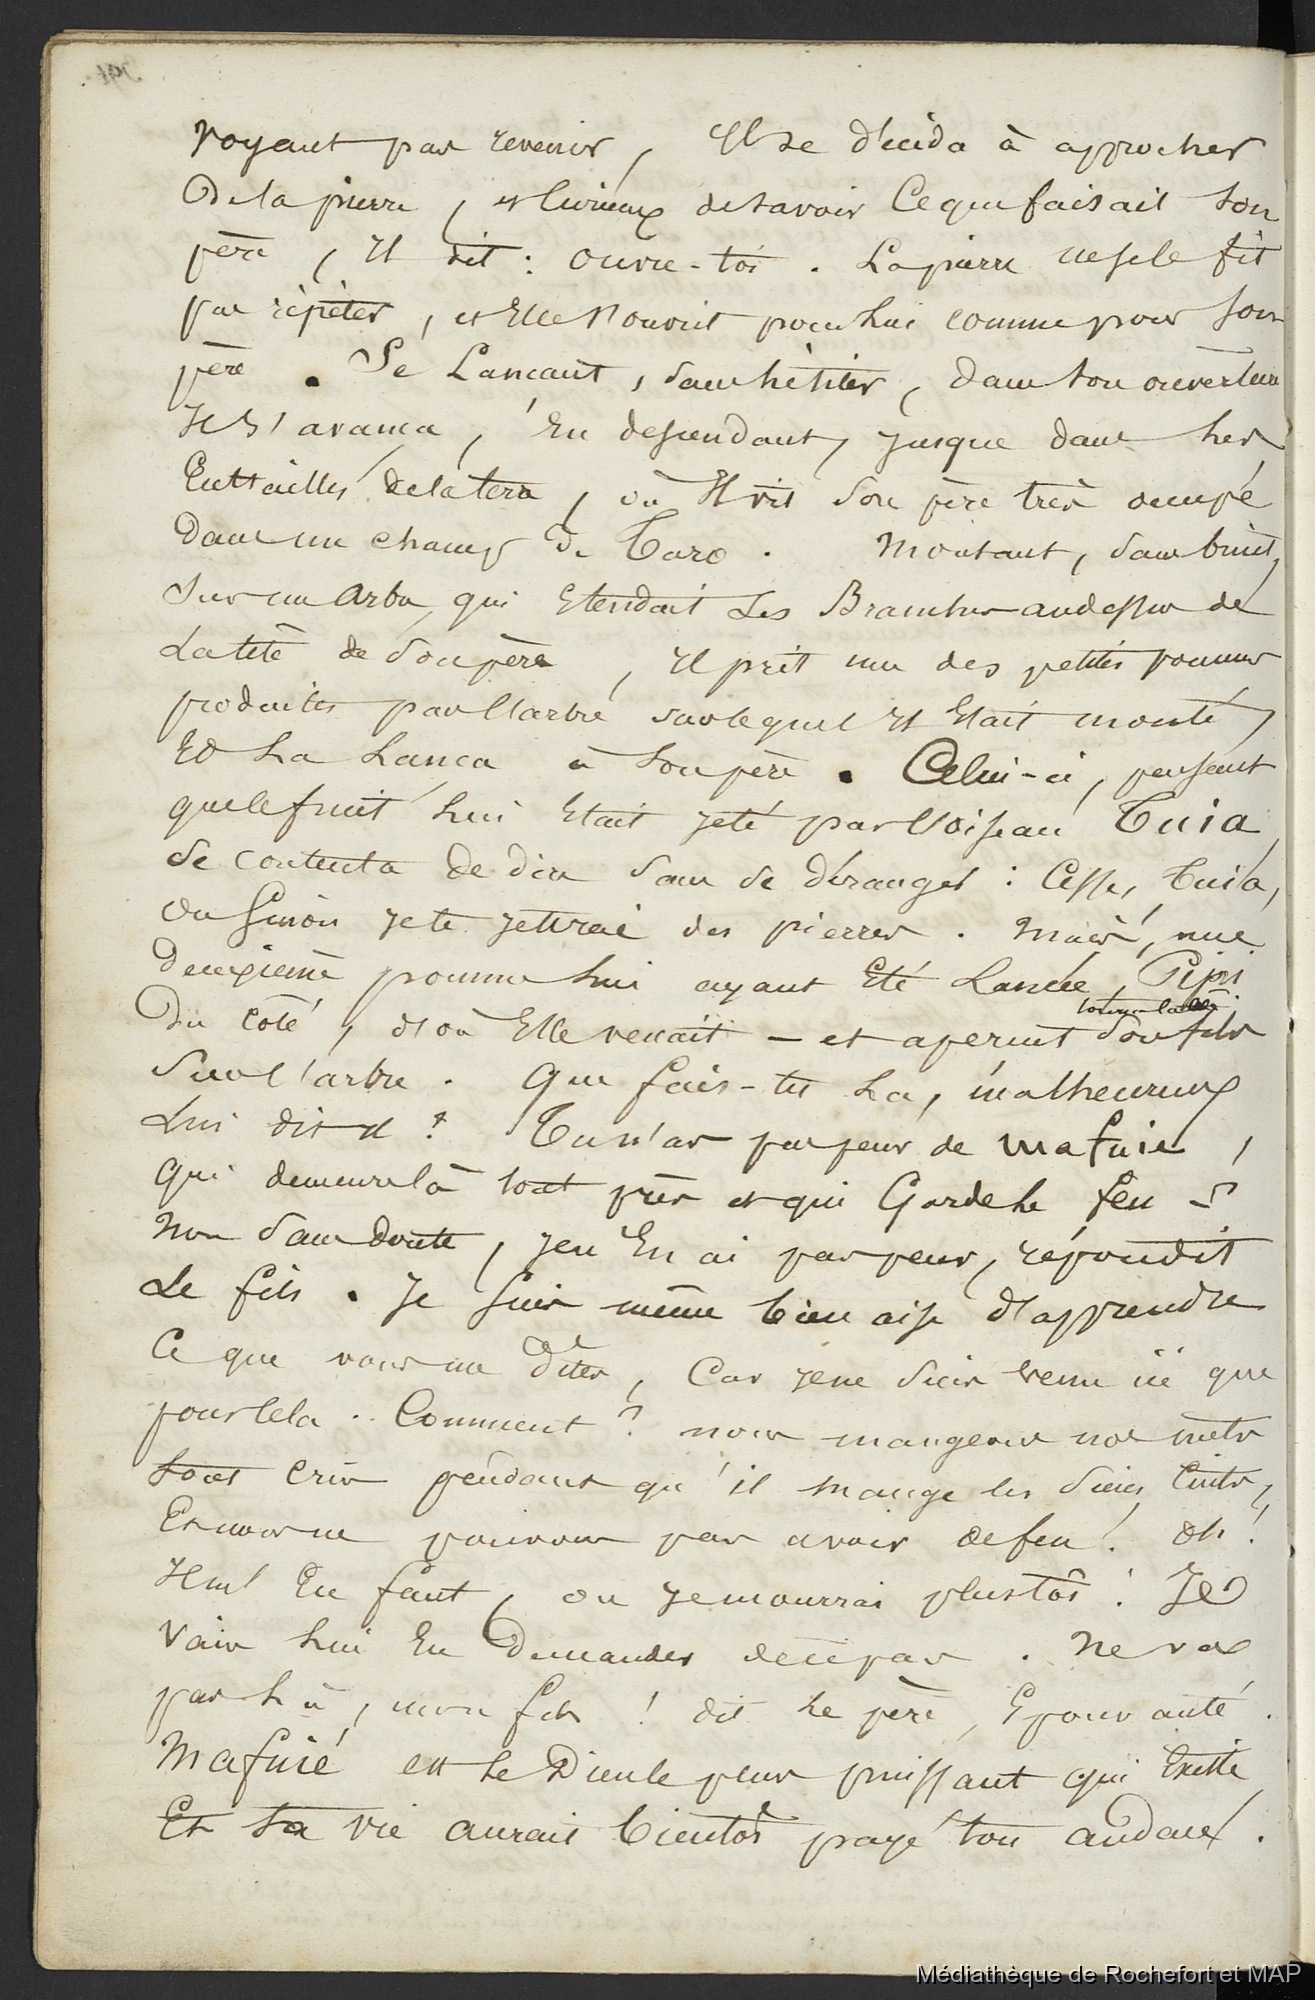 voyant pas revenir, Il se décida à approcher
De la pierre, et Curieux de savoir Ce que faisait son
père, Il dit : ouvre-toi. La pierre ne se le fit
pas répéter, et Elle s'ouvrit pour lui comme pour son
père. Se Lançant, sans hésiter, dans son ouverture
Il s'avança, En descendant, jusque dans les
Entrailles de la terre, où Il vit son père très occupé
Dans un champ de Taro. Montant, sans bruit,
Sur un Arbre, qui Etendait Ses Branches au dessus de
La tête de Son père, Il prit une des petites pommes
produites par l'arbre sur lequel Il Etait monté,
Et La Lança à Son père. Celui-ci, pensant
que le fruit lui Etait jeté par l'oiseau Tuia
se contenta de dire sans se déranger : Cesse, Tuia,
ou sinon je te jetterai des pierres. Mais, une
Deuxième pomme lui ayant Eté Lancée, Pipi
tourna la tête
Du côté, d'où Elle venait – et aperçut Son fils
Sur l'arbre. Que fais-tu La, malheureux
Lui dit il ? Tu n'as pas peur de Mafuie,
Qui demeure là tout près et qui Garde le feu ?
Non Sans Doute, je n'En ai pas peur, répondit
Le fils. Je suis même bien aise d'apprendre
Ce que vous me Dites, Car je ne suis venu ici que
pour Cela. Comment ? nous mangeons nos mets
tout crus pendant qu'il mange les siens Cuits,
Et nous ne pouvons pas avoir de feu ! Oh !
Il m'En faut, ou je mourrai plustôt ! Je
Vais lui En Demander de ce pas. Ne va
pas là, mon fils ! dit le père, Epouvanté.
Mafuié est le Dieu le plus puissant qui Existe
Et ta vie aurait bientôt payé ton audace.
Médiathèque de Rochefort et MAP